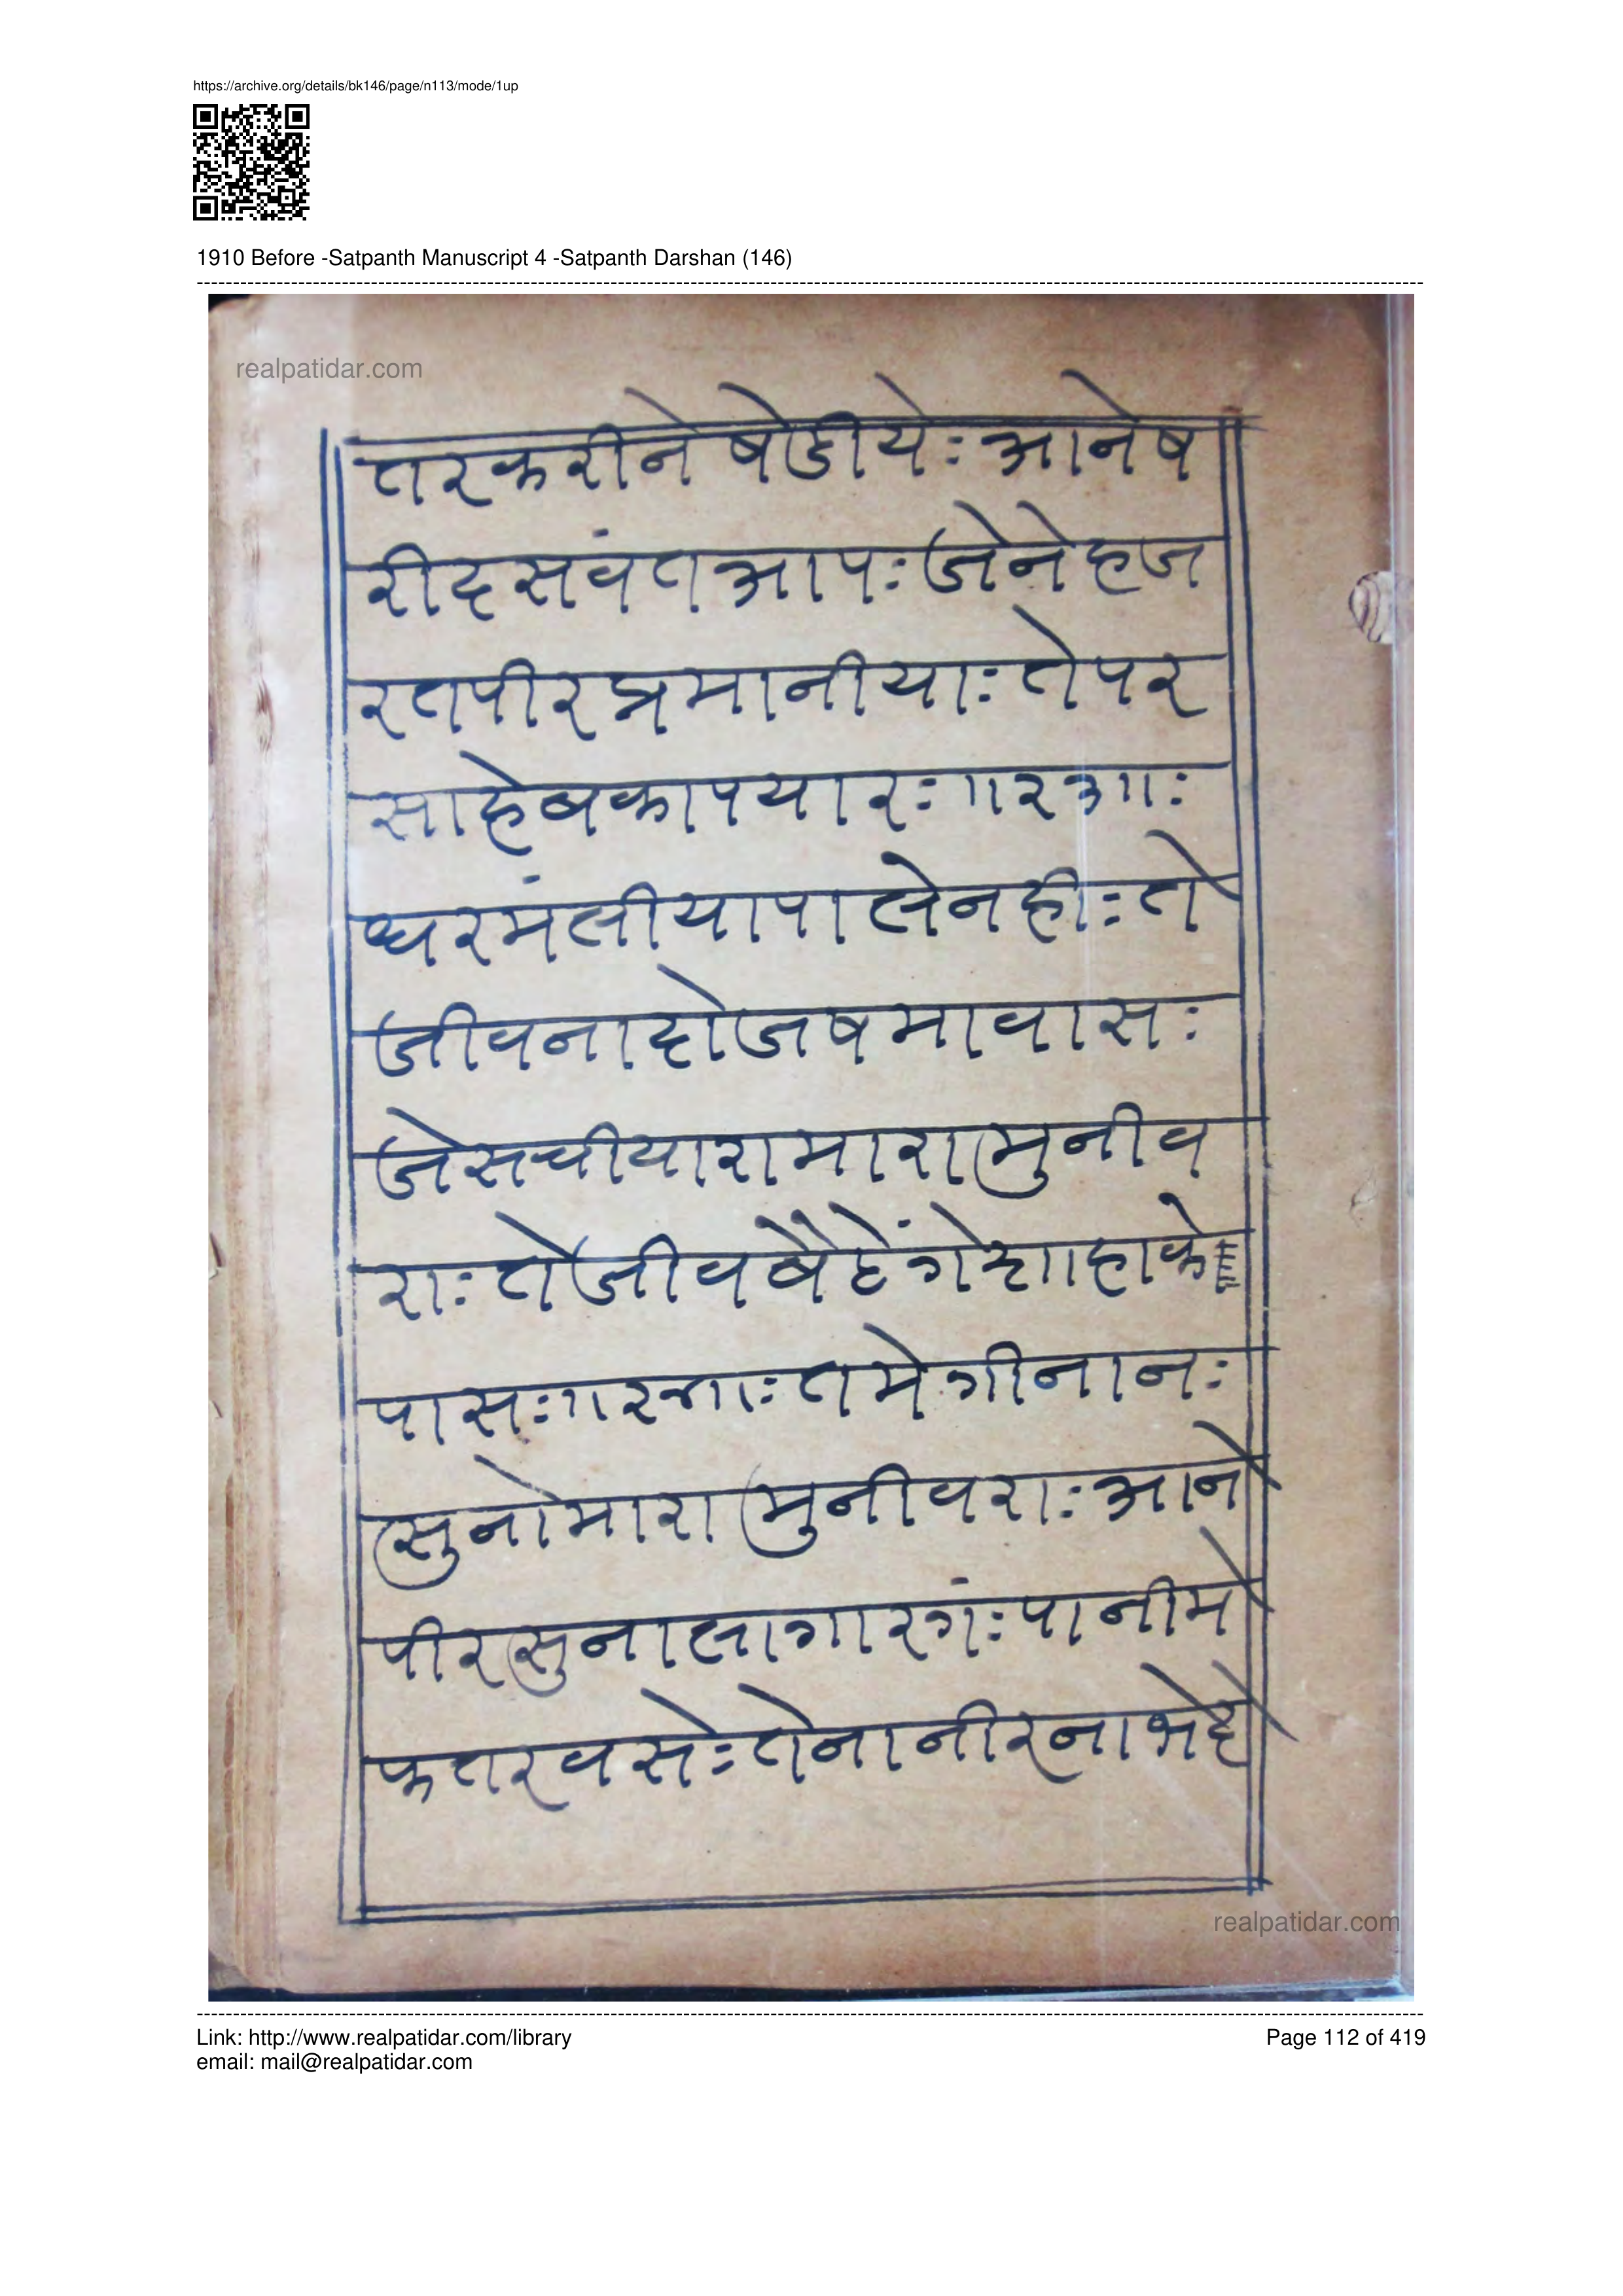 https://archive.org/details/bk146/page/n113/mode/1up
1910 Before -Satpanth Manuscript 4 -Satpanth Darshan (146)
realpatidar.com
तरकरीने षेडीये: आनेष
रीदसवंत आप: जेनेहज
रतपीरप्रमानीया: तेपर
साहेबकापयार:
धरमंलीयापालेनही: ते
जीवनादोजषमावास:
जेसचीयारामारामुनीव
रा: तेजीवबैठेंगेशाहाके
पास: तमेगीनान:
सुनोमारामुनीवरा: आने
पीरसुनालागारगं: पानीमे
फतरवसे: तेनानीरनाभेदे
realpatidar.com
Link: http://www.realpatidar.com/library
Page 112 of 419
email: mail@realpatidar.com